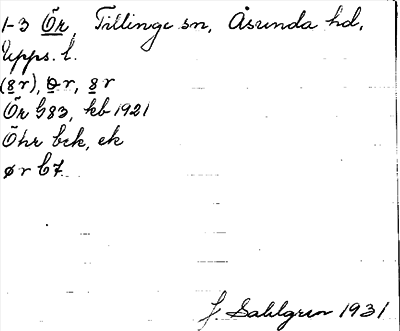 1-3 Ör, Tillinge sn, Åsunda hd,
Upps. l.
(8r), 8r, 8r
Ör G83, kb 1921
Öhr bck, ek
ør b7
J. Sahlgren 1931